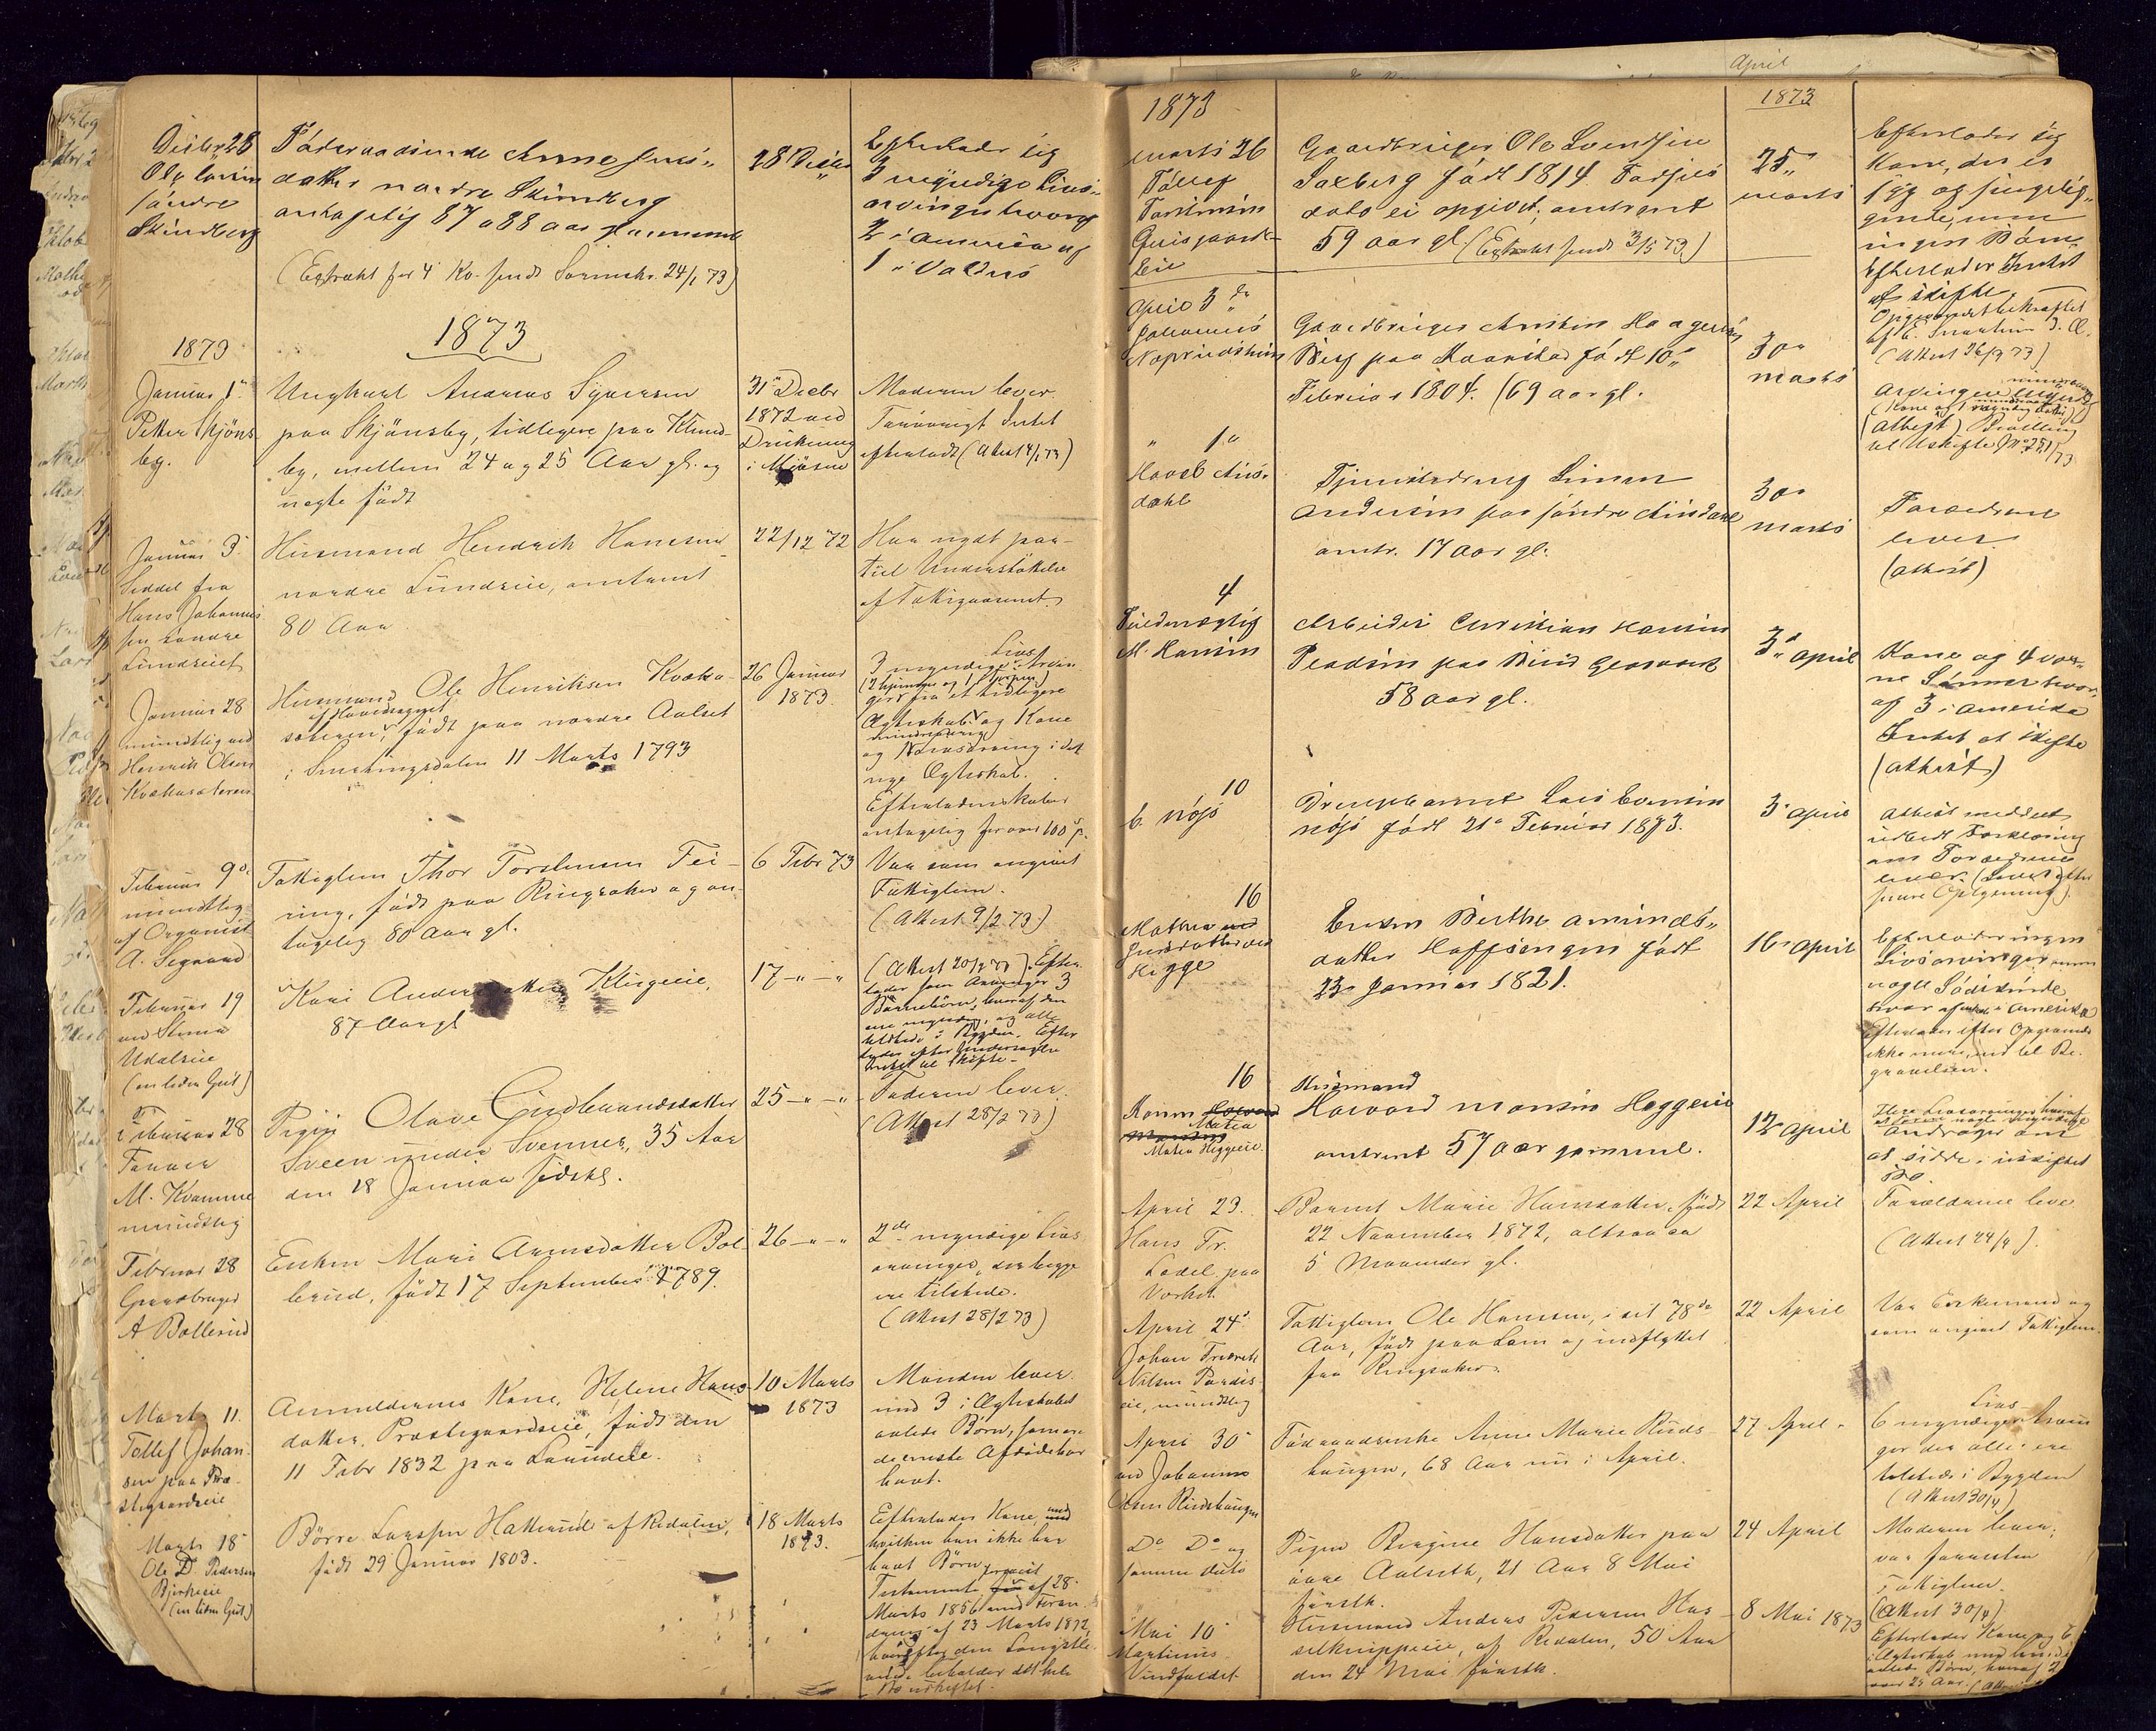 Decbr 28
Ole Larsen
søndre
Skindberg
Føderaadsenke Anne Jens-
datter nordre Skindberg
antagelig 87 a 88 aar gammel
(Extrakt for 4 Kv. sendt Sorenskr. 24/1 73)
28 Decbr
Efterlader sig
3 myndige Livs-
arvinger hvoraf
2 i America og
1 i Valdres
1873
1873
Januar 1
Petter Skjøns
by.
Ungkarl Andreas Syversen
paa Skjønsby, tidligere paa
by, mellem 24 og 25 Aar gl. og
uægte født
31 Decbr
1872 ved
Drukning
i Mjøsen
Moderen lever.
Forøvrigt Intet
efterladt (Attest 4/1 73)
Januar 3
Seddel fra
Hans Johannes
sen søndre
Lundseiet
Husmand Hendrik Hansen
nordre Lundseie, omtrent
80 Aar
22/12 72
Har nydt par-
tiel Understøttelse
af Fattigvæsenet.
Januar 28
mundtlig ved
Henrik Olsen
Kvækasæteren
Husmand Ole Henriksen Kvæka-
sæteren, født paa nordre Aalset
i Smestingsdalen 11 Marts 1793
26 Januar
1873.
3 myndige Livs Arvin-
ger fra et tidligere
Ægteskab og Kone
og 1 Livsarving i det
nye Ægteskab.
Efterladenskaber
antagelig for over 100 Sp.
Februar 9de
mundtlig
af Organist
A. Segaard
Fattiglem Thor Torstensen Tei-
ring, født paa Ringsaker og an-
tagelig 80 Aar gl.
6 Febr 73
Var som angivet
Fattiglem.
(Attest 9/2 73.)
Februar 19
ved Stina
Udalseie
(en liden Gut)
Kari Andersdatter Klingeie.
87 Aar gl
17 - " - "
(Attest 20/2 73). Efter-
lader som Arvinger 3
Børnebørn, hvoraf den
ene myndig, og alle
tilstede i Bygden. Efter-
lader efter Undersøgelse
Intet til Skifte -
Februar 28
Farver
M. Kvamme
mundtlig
Pigen Olave Gudbrandsdatter
Sveen under Svennes, 35 Aar
den 18 Januar sidstl.
25 - " - "
Faderen lever.
(Attest 28/2 73)
Februar 28
Gaardbruger
A Bollerud
Enken Mari Arnesdatter Bol-
lerud, født 17 September 1789.
26 - " - "
2de myndige Livs
arvinger, der begge
ere tilstede.
(Attest 28/2 73)
Marts 11.
Tollef Johan-
sen paa Præ-
stegaardseie
Anmelderens Kone, Helene Hans-
datter, Præstegaardseie, født den
11 Febr 1832 paa
10 Marts
1873
Manden lever
med 3 i Ægteskabet
avlede Børn, som er
de eneste Afdøde har
havt.
Marts 18
Ole D. Pedersen
Bjerkeeie
(en liden Gut)
Børre Larssen Hallerud af Redalen,
født 29 Januar 1803.
18 Marts
1873.
Efterlader Kone, med
hvilken han ikke har
havt Børn
Testamente af 28
Marts 1856 med Foran-
dring af 23 Marts 1872,
hvorefter den Længstle-
vende beholder det hele
April
1873
1873
Marts 26
Tollef
Torstensen
eie
Gaardbruger Ole Svendsen
Saxberg født 1814. Fødsels
dato ei opgivet, omtrent
59 aar gl. (Extrakt sendt 3/5 73.)
25
marts
Efterlader sig
Kone, der er
syg og sengelig-
gende, men
ingen Børn.
Efterlader Intet
at skifte.
(Attest 26/3 73)
April 3de
Johannes
Gaardbruger Christen Haagensen
Berg paa Kaarstad født 10
Februar 1804. (69 aar gl.
30
marts
(Attest)
" 1
Tjenestedreng Simen
Andersen paa søndre
omtr. 17 aar gl.
30
marts
Forældrene
lever
(attest)
4
Fuldmægtig
M. Hansen
Arbeider Christian Hansen
58 aar gl.
3 april
Kone og 4 vox-
ne Sønner hvor-
af 3 i Amerika
Intet at skifte
(attest)
10
Drengebarnet
født 21 Februar 1873.
3 april
Attest meddelt
16
Hegge
Enken Berthe Amunds-
datter Hoffsengen født
23 Januar 1821.
16 april
Efterlader ingen
Livsarvinger men
nogle Sødskende
hvor af i Amerika
Efterlader efter Opgivende
ikke mere, end til Be-
gravelsen.
16
Maren
Matea
Matea Heggeeie.
Husmand
Halvord Monsen Heggeeie
omtrent 57 aar gammel.
12 april
Flere Livsarvinger hvoraf
Andrager om
at sidde i uskiftet
Bo.
April 23.
Hans Fr.
Ladel paa
Barnet Marie Hansdatter, født
22 November 1872, altsaa ca
5 Maaneder gl.
22 April
Forældrene leve
(Attest 24/4).
April 24
Johan Fredrik
Nilsen Paradis-
eie, mundtlig
Fattiglem Ole Hansen, i sit 78de
Aar, født paa Lom og indflyttet
fra Ringsaker.
22 April
Var Enkemand og
som angivet Fattiglem.
April 30
ved Johannes
Olsen Rudshaugen
Føderaadsenke Anne Marie Ruds-
haugen, 68 Aar nu i April.
27 April
6 myndige Livs Arvin-
ger der alle ere
tilstede i Bygden
(Attest 30/4)
Do Do og
samme dato
Pigen Bergine Hansdatter paa
øvre Aalseth, 21 Aar 8 Mai
førstk.
24 April
Moderen lever,
var forresten
Fattiglem.
(Attest 30/4)
Mai 10
Martinus
Vindfaldet
Husmand Anders Pedersen Has-
selknippeeie, af Redalen, 50 Aar
den 24 Mai førstk.
8 Mai 1873
Efterlader Kone og 6
i Ægteskab med hende
avlede Børn, hvoraf 2
over 25 Aar.